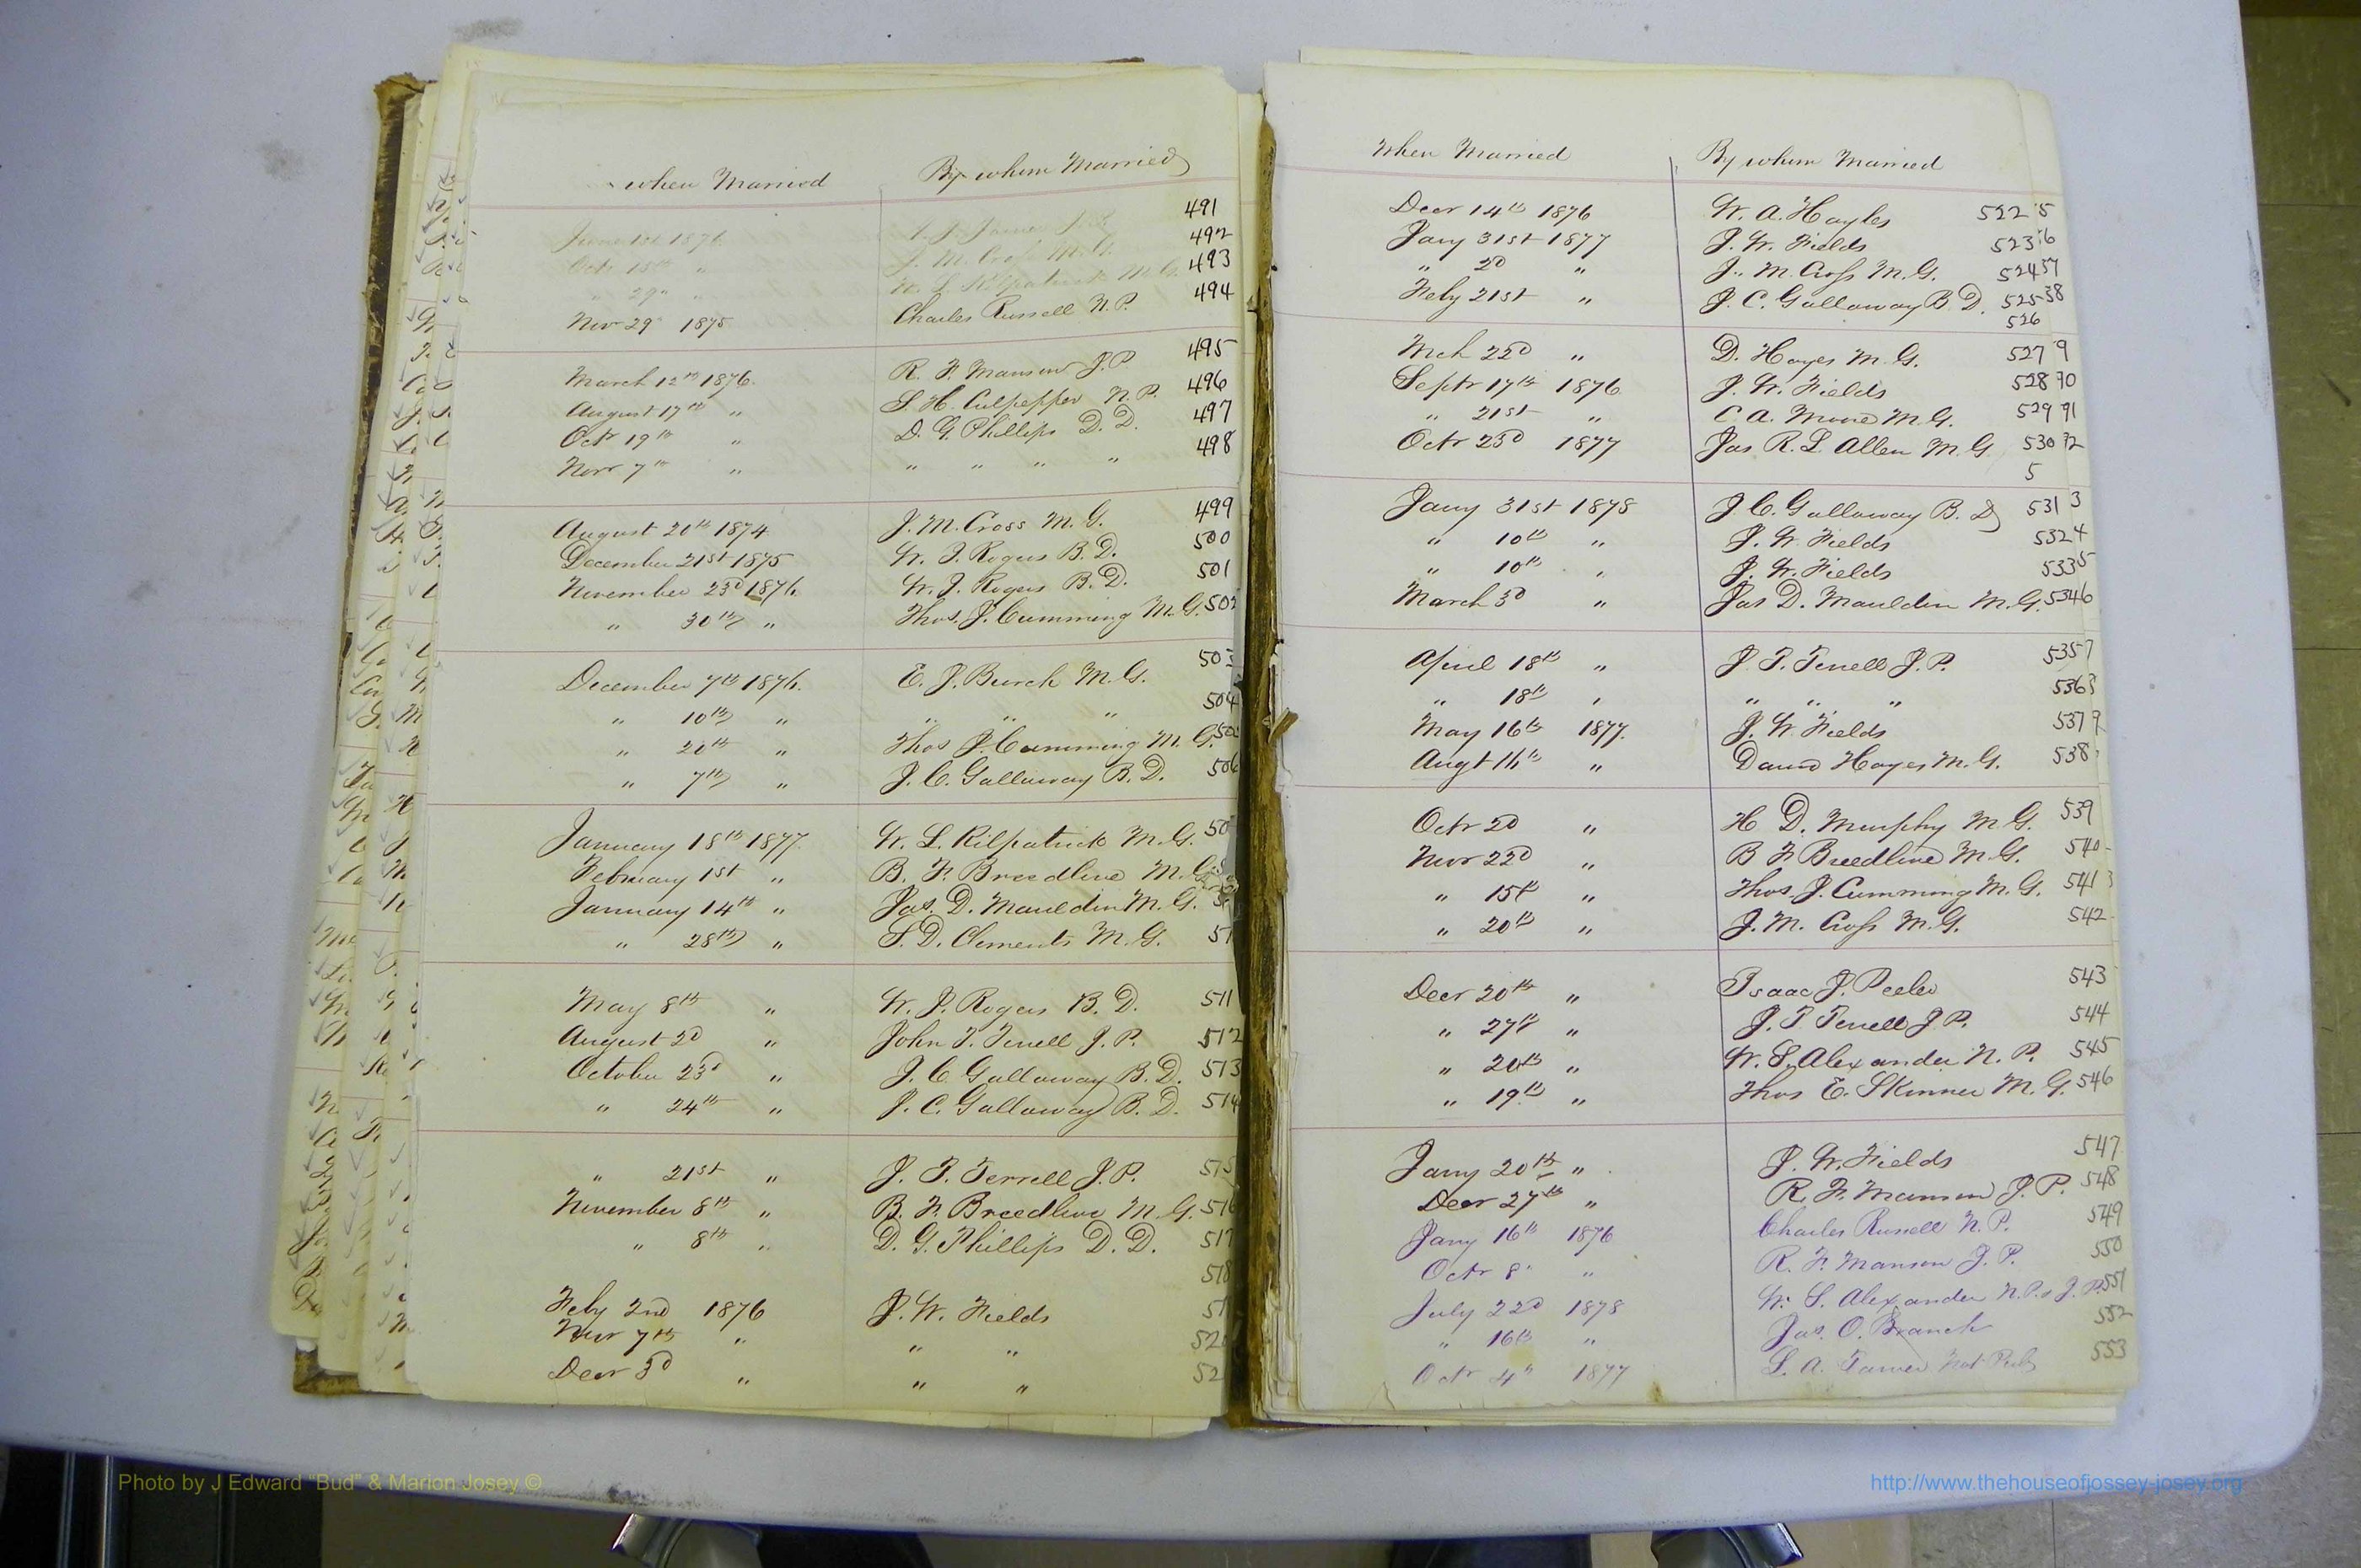 when Married By whom Married
491
June 1st 1876 J.P. 492
Octr 15th " J. M. Cross M.G. 493
" 29th " W. L. Kilpatrick M.G. 494
Nov 29 1875 Charles Russell N.P.
495
March 12th 1876. R. F. Manson J.P. 496
August 17th " S. H. Culpepper N.P. 497
Octr 19th " D. G. Phillips D.D. 498
Novr 7th " " " " "
499
August 20th 1874 J. M. Cross M.G. 500
December 21st 1875 W. J. Rogers B.D. 501
November 23d 1876. W. J. Rogers B.D.
" 30th " Thos. J. Cumming M.G. 502
503
December 7th 1876. E. J. Burch M.G. 504
" 10th " " " "
" 20th " Thos J. Cumming M.G.
" 7th " J. C. Gallaway B.D. 506
January 18th 1877. W. L. Kilpatrick M.G.
February 1st " B. F. Breedlove M.G.
January 14th " Jas. D. Mauldin M.G.
" 28th " S. D. Clements M.G.
May 8th " W. J. Rogers B.D. 511
August 2d " John T. Terrell J.P. 512
October 23d " J. C. Gallaway B.D. 513
" 24th " J. C. Gallaway B.D. 514
" 21st " J. T. Terrell J.P. 515
November 8th " B. F. Breedlove M.G. 516
" 8th " D. G. Phillips D.D. 517
518
Feby 2nd 1876 J. W. Fields
Novr 7th " " " 520
Decr 3d " " " 52
When Married By whom Married
Decr 14th 1876 W. A. Hayles 522 5
Jany 31st 1877 J. W. Fields 523 6
" 2d " J. M. Cross M.G. 524 57
Feby 21st " J. C. Gallaway B.D. 525 58
526
Mch 22d " D. Hayes M.G. 527 9
Septr 17th 1876 J. W. Fields 528 70
" 21st " C. A. Moore M.G. 529 91
Octr 23d 1877 Jas R. L. Allen M.G. 530 72
5
Jany 31st 1878 J. C. Gallaway B.D 531 3
" 10th " J. W. Fields 532 4
" 10th " J. W. Fields 533 5
March 3d " Jas D. Mauldin M.G. 534 6
April 18th " J. T. Terrell J.P. 535 7
" 18th " " " " 536
May 16th 1877. J. W. Fields 537 9
Augt 16th " David Hayes M.G. 538
Octr 2d " H D. Murphy M.G. 539
Novr 22d " B F Breedlove M.G. 540
" 15th " Thos. J. Cumming M.G. 541 3
" 20th " J. M. Cross M.G. 542
Decr 20th " Isaac J. Peeler 543
" 27th " J. T. Terrell J.P. 544
" 20th " W. S. Alexander N.P. 545
" 19th " Thos E. Skinner M.G. 546
Jany 20th " J. W. Fields 547
Decr 27th " R. F. Manson J.P. 548
Jany 16th 1876 Charles Russell N.P. 549
Octr 8" " R. F. Manson J.P. 550
July 22d 1878 W. S. Alexander N.P. & J.P. 551
" 16th " Jas. O. Branch 552
Octr 4" 1877 L. A. Not Pub 553
Photo by J Edward "Bud" & Marion Josey ©
http://www.thehouseofjossey-josey.org